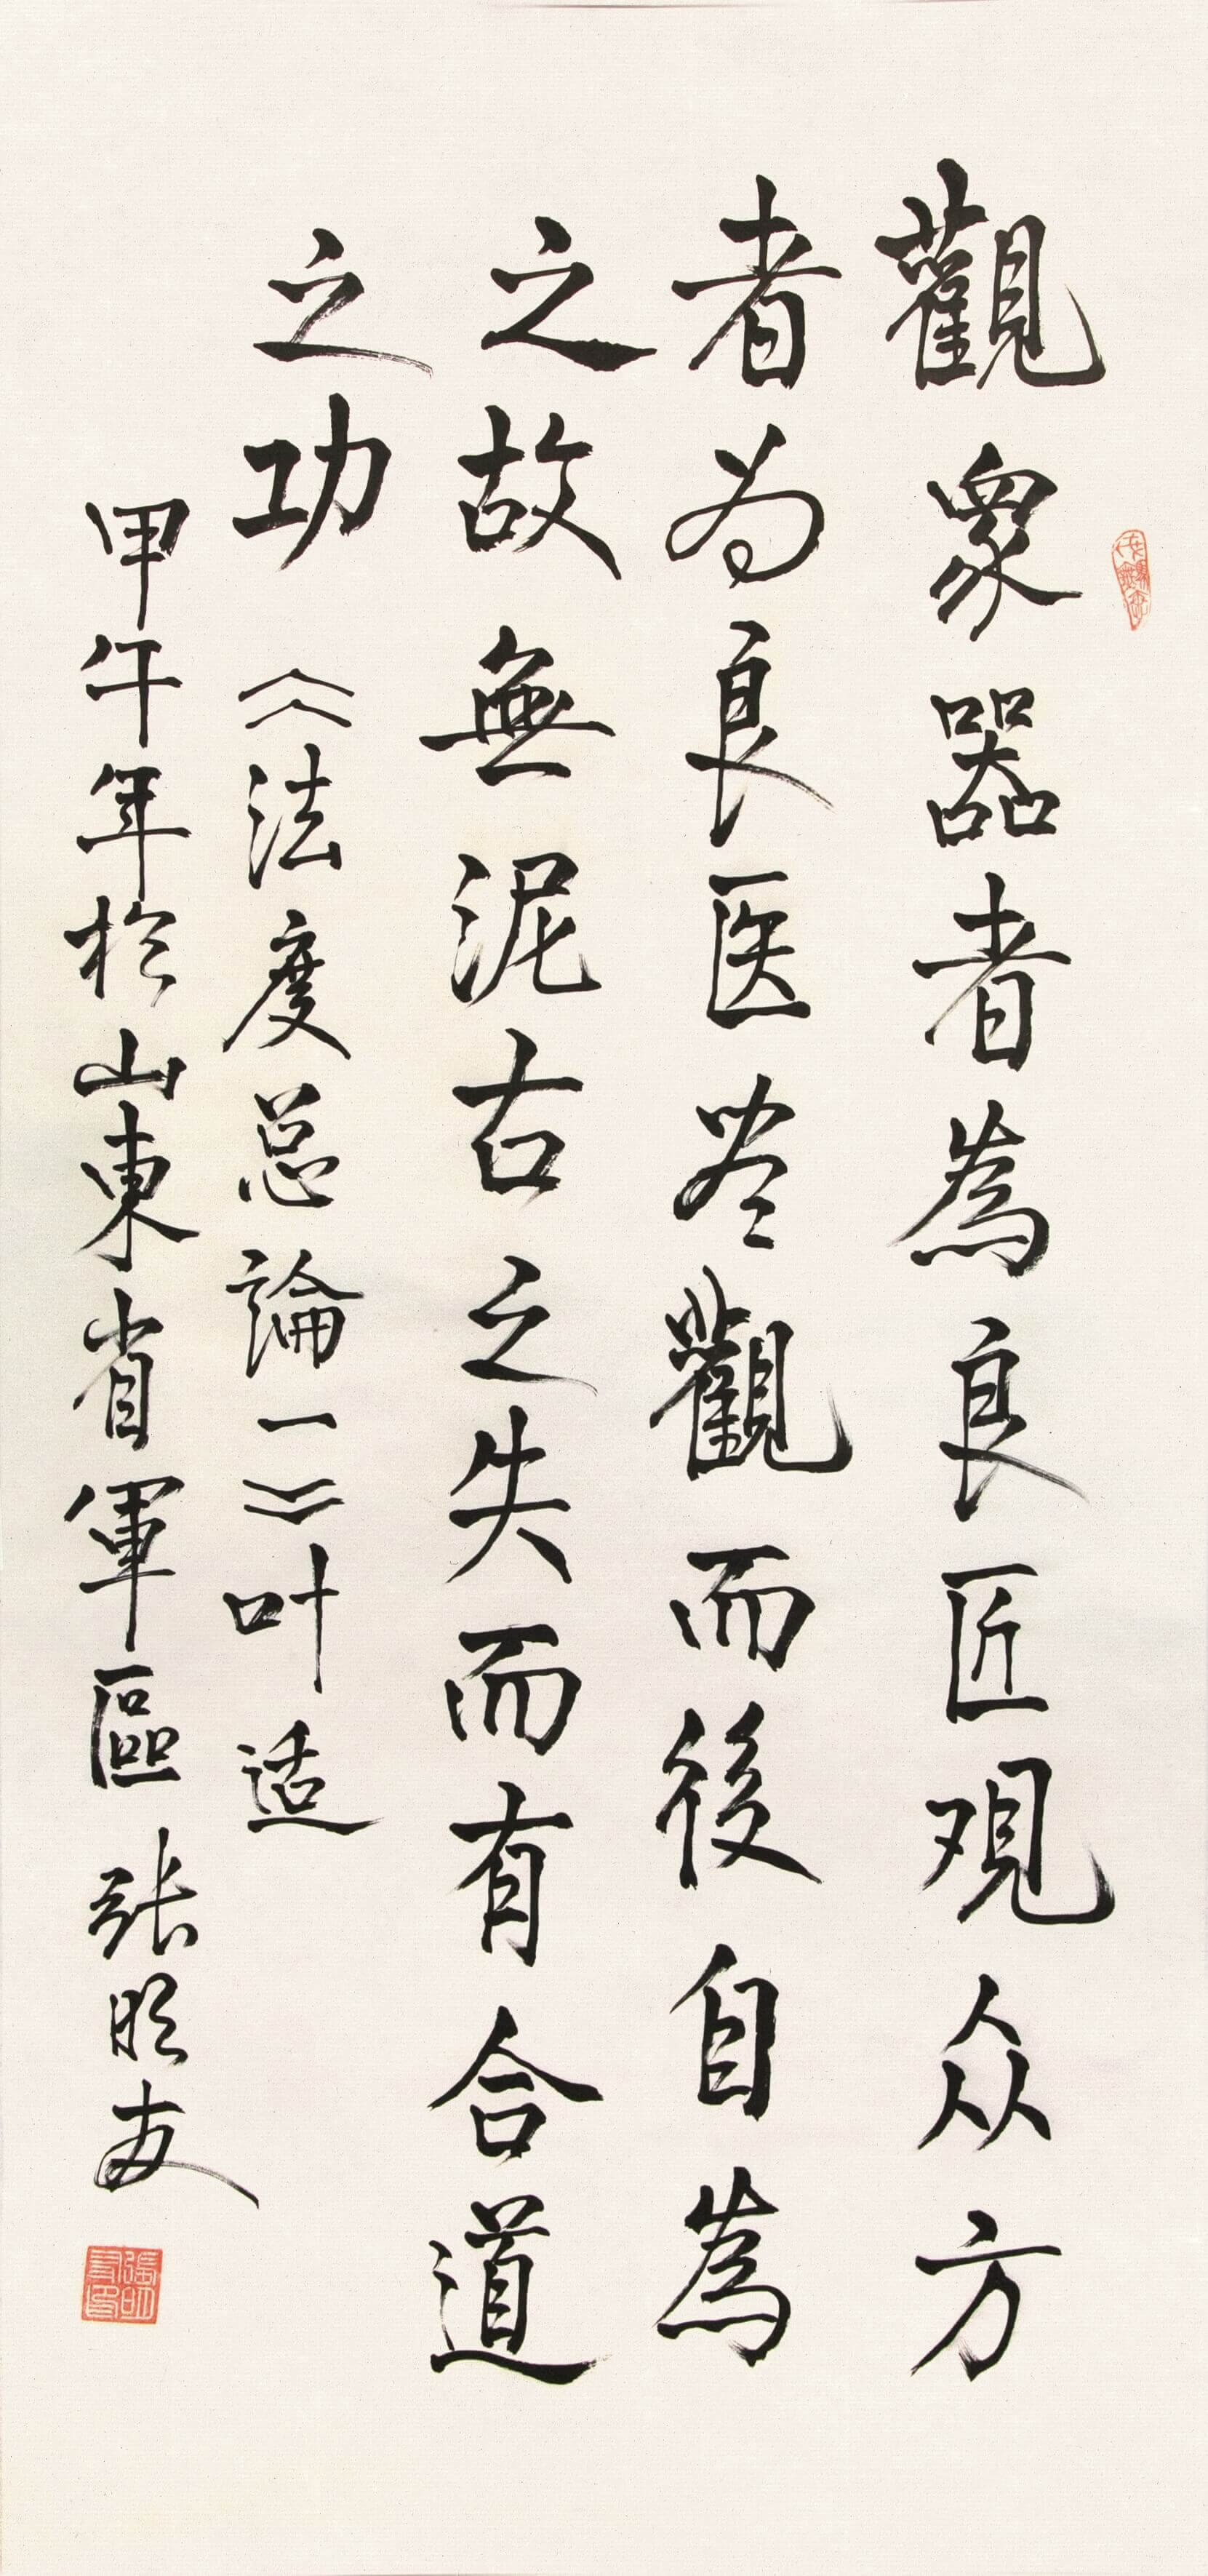 觀衆器者為良匠观众方
者为良医尽觀而後自為
之故無泥古之失而有合道
之功《法度总論一》叶适
甲午年於山東省軍區 张明友
張明友印